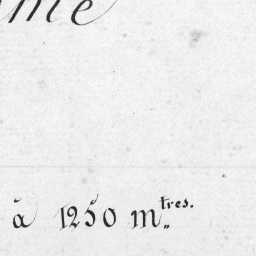 à 1250 mtres.